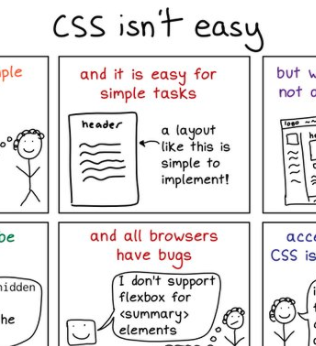 CSS isn't easy
ple
and it is easy for
simple tasks
header
a layout
like this is
simple to
implement!
but w
not a
logo
be
hidden
he
and all browsers
have bugs
I don't support
flexbox for
<summary>
elements
acce
CSS is